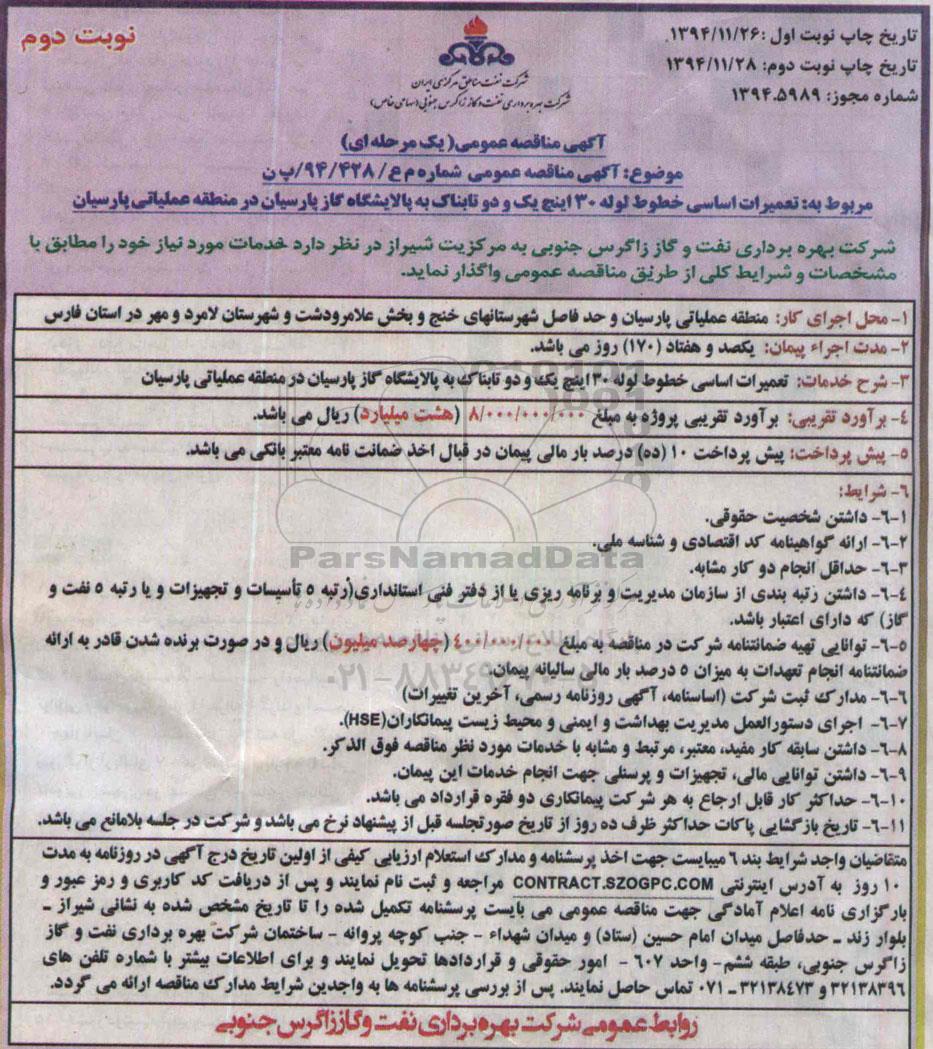 تاریخ چاپ نوبت اول :۱۳۹۴/۱۱/۲۶
نوبت دوم
تاریخ چاپ نوبت دوم: ۱۳۹۴/۱۱/۲۸
شماره مجوز: ۱۳۹۴.۵۹۸۹
شرکت نفت مناطق مرکزی ایران
شرکت بهره برداری نفت و گاز زاگرس جنوبی (سهامی خاص)
آگهی مناقصه عمومی( یک مرحله ای)
موضوع: آگهی مناقصه عمومی شماره م ع/ ۹۴/۴۲۸/پ ن
مربوط به: تعمیرات اساسی خطوط لوله ۳۰ اینچ یک و دو تابناک به پالایشگاه گاز پارسیان در منطقه عملیاتی پارسیان
شرکت بهره برداری نفت و گاز زاگرس جنوبی به مرکزیت شیراز در نظر دارد خدمات مورد نیاز خود را مطابق با
مشخصات و شرایط کلی از طریق مناقصه عمومی واگذار نماید.
۱- محل اجرای کار: منطقه عملیاتی پارسیان و حد فاصل شهرستانهای خنج و بخش علامرودشت و شهرستان لامرد و مهر در استان فارس
۲- مدت اجراء پیمان: یکصد و هفتاد (۱۷۰) روز می باشد.
۳- شرح خدمات: تعمیرات اساسی خطوط لوله ۳۰ اینچ یک و دو تابناک به پالایشگاه گاز پارسیان در منطقه عملیاتی پارسیان
۴- برآورد تقریبی: برآورد تقریبی پروژه به مبلغ ۸/۰۰۰/۰۰۰/۰۰۰ (هشت میلیارد) ریال می باشد.
۵- پیش پرداخت: پیش پرداخت ۱۰ (ده) درصد بار مالی پیمان در قبال اخذ ضمانت نامه معتبر بانکی می باشد.
۶- شرایط:
۶-۱- داشتن شخصیت حقوقی.
۶-۲- ارائه گواهینامه کد اقتصادی و شناسه ملی.
۶-۳- حداقل انجام دو کار مشابه.
۶-۴- داشتن رتبه بندی از سازمان مدیریت و برنامه ریزی یا از دفتر فنی استانداری(رتبه ۵ تأسیسات و تجهیزات و یا رتبه ۵ نفت و
گاز) که دارای اعتبار باشد.
۶-۵- توانایی تهیه ضمانتنامه شرکت در مناقصه به مبلغ ۴۰۰/۰۰۰/۰۰۰ (چهارصد میلیون) ریال و در صورت برنده شدن قادر به ارائه
ضمانتنامه انجام تعهدات به میزان ۵ درصد بار مالی سالیانه پیمان.
۶-۶- مدارک ثبت شرکت (اساسنامه، آگهی روزنامه رسمی، آخرین تغییرات)
۶-۷- اجرای دستورالعمل مدیریت بهداشت و ایمنی و محیط زیست پیمانکاران(HSE).
۶-۸- داشتن سابقه کار مفید، معتبر، مرتبط و مشابه با خدمات مورد نظر مناقصه فوق الذکر.
۶-۹- داشتن توانایی مالی، تجهیزات و پرسنلی جهت انجام خدمات این پیمان.
۶-۱۰- حداکثر کار قابل ارجاع به هر شرکت پیمانکاری دو فقره قرارداد می باشد.
۶-۱۱- تاریخ بازگشایی پاکات حداکثر ظرف ده روز از تاریخ صورتجلسه قبل از پیشنهاد نرخ می باشد و شرکت در جلسه بلامانع می باشد.
متقاضیان واجد شرایط بند ۶ میبایست جهت اخذ پرسشنامه و مدارک استعلام ارزیابی کیفی از اولین تاریخ درج آگهی در روزنامه به مدت
۱۰ روز به آدرس اینترنتی CONTRACT.SZOGPC.COM مراجعه و ثبت نام نمایند و پس از دریافت کد کاربری و رمز عبور و
بارگزاری نامه اعلام آمادگی جهت مناقصه عمومی می بایست پرسشنامه تکمیل شده را تا تاریخ مشخص شده به نشانی شیراز –
بلوار زند – حدفاصل میدان امام حسین (ستاد) و میدان شهداء – جنب کوچه پروانه – ساختمان شرکت بهره برداری نفت و گاز
زاگرس جنوبی، طبقه ششم- واحد ۶۰۷ - امور حقوقی و قراردادها تحویل نمایند و برای اطلاعات بیشتر با شماره تلفن های
۳۲۱۳۸۳۹۶ و ۳۲۱۳۸۴۷۳ – ۰۷۱ تماس حاصل نمایند. پس از بررسی پرسشنامه ها به واجدین شرایط مدارک مناقصه ارائه می گردد.
روابط عمومی شرکت بهره برداری نفت و گاز زاگرس جنوبی
ParsNamadData